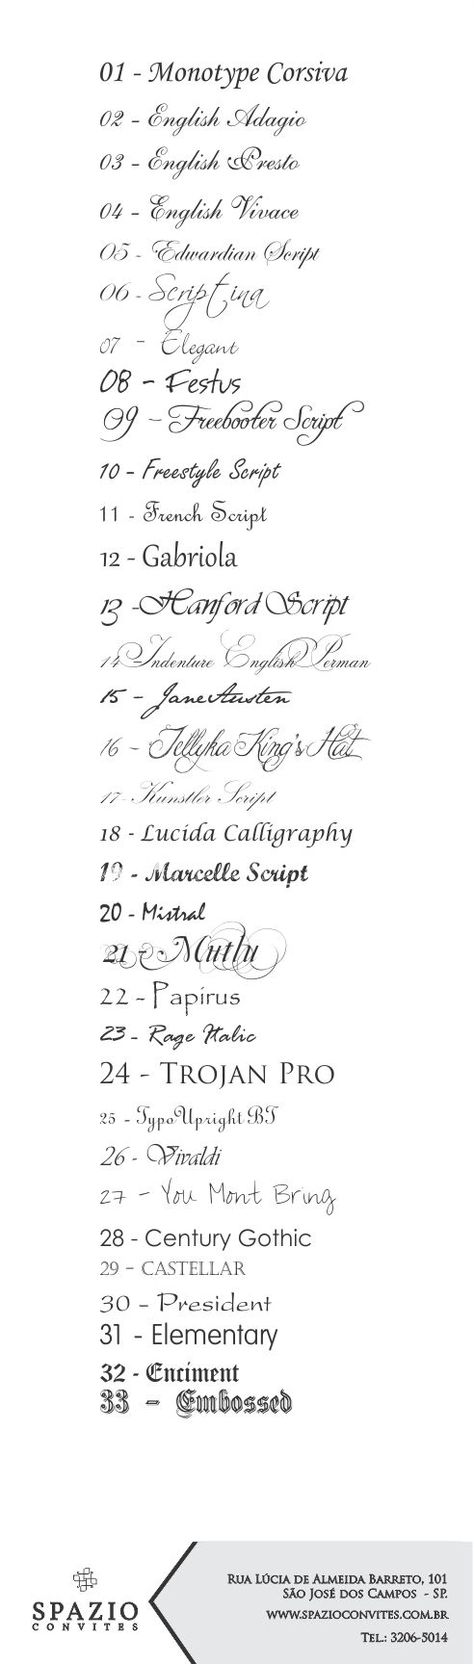 01 - Monotype Corsiva
02 - English Adagio
03 - English Presto
04 - English Vivace
05 - Edwardian Script
06 - Scriptina
07 - Elegant
08 - Festus
09 - Freebooter Script
10 - Freestyle Script
11 - French Script
12 - Gabriola
13 -Hanford Script
14 - Indenture English Penman
15 - JaneAusten
16 - Jellyka King's Hat
17 - Kunstler Script
18 - Lucida Calligraphy
19 - Marcelle Script
20 - Mistral
21 - Mutlu
22 - Papirus
23 - Rage Italic
24 - TROJAN PRO
25 - TypoUpright BT
26 - Vivaldi
27 - You Mont Bring
28 - Century Gothic
29 - CASTELLAR
30 - President
31 - Elementary
32 - Enciment
33 - Embossed
SPAZIO
CONVITES
RUA LÚCIA DE ALMEIDA BARRETO, 101
SÃO JOSÉ DOS CAMPOS - SP.
WWW.SPAZIOCONVITES.COM.BR
TEL.: 3206-5014